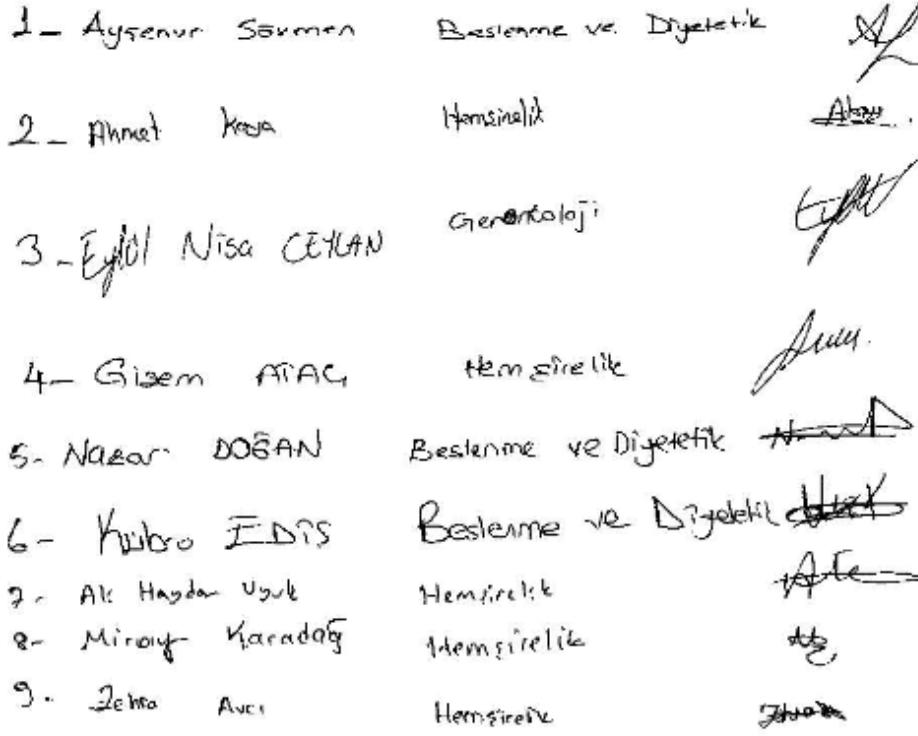 1- Ayşenur Sövmen Beslenme ve Diyetetik
2- Ahmet Kaya Hemşirelik
3- Eylül Nisa CEYLAN Gerontoloji
4- Gizem ATAÇ Hemşirelik
5- Nazar DOĞAN Beslenme ve Diyetetik
6- Kübra EDİS Beslenme ve Diyetetik
7- Ali Haydar Uyuk Hemşirelik
8- Miray Karadağ Hemşirelik
9- Zehra Avcı Hemşirelik